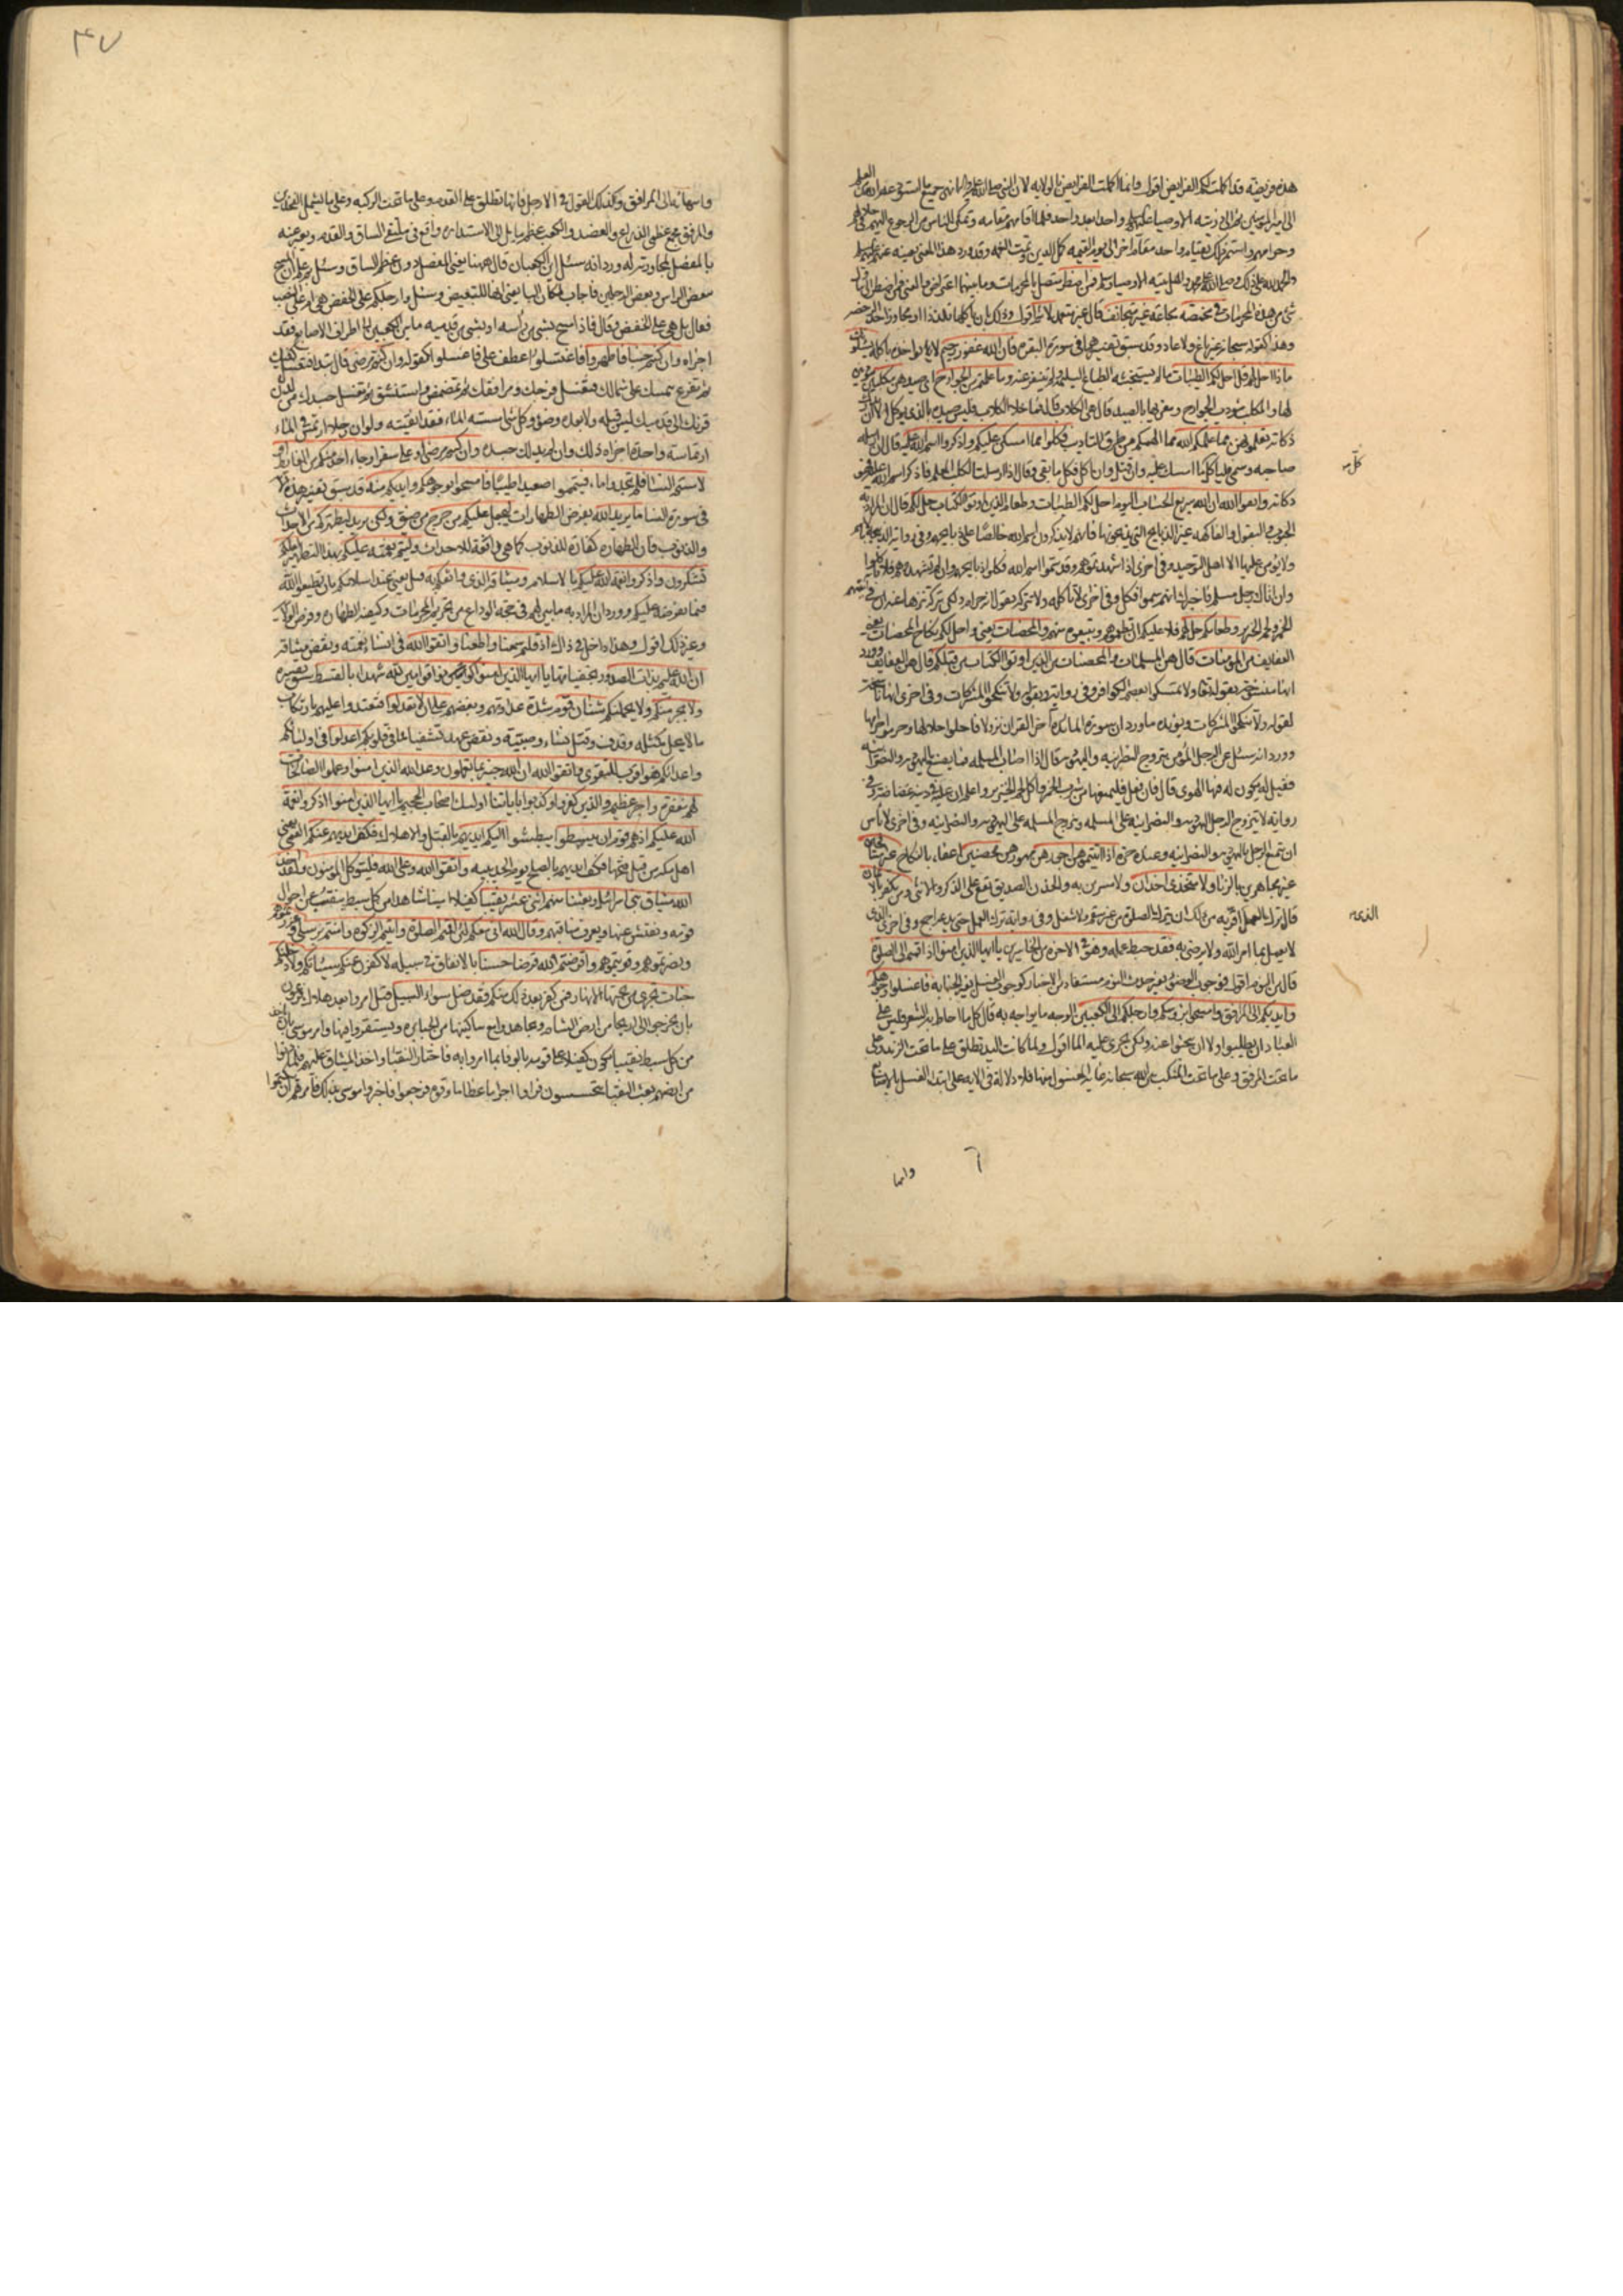 هذه فريضة قد اكملت لكم الفرايض اقول وانما اكملت الفرايض بالولاية لان النبي صلى الله عليه واله انهى جميع ما استودعه الله من العلم
الى امير المؤمنين ثم الى ذريته الاوصياء عليهم واحدا بعد واحد فلما اقامهم مقامه وتمكن الناس من الرجوع اليهم في حلالهم
وحرامهم واستمر ذلك بقيام واحد مقام اخر الى يوم القيمة كمل الدين وتمت النعمة وقد ورد هذا المعنى بعينه عنهم عليهم السلام
فمن اضطر متصل بالمحرمات وما بينهما اعتراض والمعنى فمن اضطر الى تناول
شئ من هذه المحرمات في مخمصة مجاعة غير متجانف قال غير متعمد لاثم اقول وذلك بان ياكلها تلذذا او مجاوزا حد الرخصة
وهذا كقوله سبحانه غير باغ ولا عاد وقد سبق تفسيرهما في سورة البقرة فان الله غفور رحيم لا يؤاخذه باكله يسئلونك
ماذا احل لهم قل احل لكم الطيبات ما لم يستخبثه الطباع السليمة ولم يتنفر عنه وما علمتم من الجوارح اي صيدهن مكلبين مؤدبين
لها والمكلب مؤدب الجوارح ومغريها بالصيد قال هي الكلاب فما خلا الكلاب فليس صيده بالذي يؤكل الا ان تدرك
ذكاته تعلمونهن مما علمكم الله مما الهمكم من طرق التاديب فكلوا مما امسكن عليكم واذكروا اسم الله عليه قال اذا ارسله
صاحبه وسمى فلياكل كلما امسك عليه وان قتل وان اكل فكل ما بقي وقال اذا ارسلت الكلب المعلم فاذكر اسم الله عليه فهو
ذكاته واتقوا الله ان الله سريع الحساب اليوم احل لكم الطيبات وطعام الذين اوتوا الكتاب حل لكم قال ان المراد به
الحبوب والبقول والفاكهة غير الذبايح التي يذبحونها فانهم لا يذكرون اسم الله خالصا على ذبايحهم وفي رواية الذبيحة بالاسم
ولا يؤمن عليها الا اهل التوحيد وفي اخرى اذا شهدتموهم وقد سموا اسم الله فكلوا ذبايحهم وان لم تشهدوهم فلا تاكلوا
وان اتاك رجل مسلم فاخبرك انهم سموا فكل وفي اخرى لا تاكله ولا تتركه تقول انه حرام ولكن تتركه تنزها عنه ان في انيتهم
الخمر ولحم الخنزير وطعامكم حل لهم فلا عليكم ان تطعموهم وتبيعوه منهم والمحصنات يعني واحل لكم نكاح المحصنات يعني
العفايف من المؤمنات قال هن المسلمات والمحصنات من الذين اوتوا الكتاب من قبلكم قال هن العفايف وورد
انها منسوخة بقوله تعالى ولا تمسكوا بعصم الكوافر وفي رواية وبقوله ولا تنكحوا المشركات وفي اخرى انها ناسخة
لقوله ولا تنكحوا المشركات ويؤيده ما ورد ان سورة المائدة اخر القران نزولا فاحلوا حلالها وحرموا حرامها
وورد انه سئل عن الرجل المؤمن يتزوج النصرانية واليهودية قال اذا اصاب المسلمة فما يصنع باليهودية والنصرانية
فقيل له يكون له فيها الهوى قال فان فعل فليمنعها من شرب الخمر واكل لحم الخنزير واعلم ان عليه في دينه غضاضة وفي
رواية لا يتزوج الرجل اليهودية والنصرانية على المسلمة ويتزوج المسلمة على اليهودية والنصرانية وفي اخرى لا باس
ان يتمتع الرجل باليهودية والنصرانية وعنده حرة اذا اتيتموهن اجورهن مهورهن محصنين اعفاء بالنكاح غير مسافحين
غير مجاهرين بالزنا ولا متخذي اخدان ولا مسرين به والخدن الصديق يقع على الذكر والانثى ومن يكفر بالايمان
قال ترك العمل الذي اقر به من ذلك ان يترك الصلوة من غير سقم ولا شغل وفي رواية ترك العمل حتى يدعه اجمع وفي اخرى الذي
لا يعمل بما امر الله ولا يرضى به فقد حبط عمله وهو في الاخرة من الخاسرين يا ايها الذين امنوا اذا قمتم الى الصلوة
قال من النوم اقول فوجوب الوضوء بغير حدث النوم مستفاد من الاخبار كوجوب الغسل بغير الجنابة فاغسلوا وجوهكم
وايديكم الى المرافق وامسحوا برؤسكم وارجلكم الى الكعبين الوجه ما يواجه به قال كل ما احاط به الشعر فليس على
العباد ان يطلبوه ولا ان يبحثوا عنه ولكن يجرى عليه الماء اقول ولما كانت اليد تطلق على ما تحت الزند وعلى
ما تحت المرفق وعلى ما تحت المنكب بين الله سبحانه غاية المغسول منها فلا دلالة في الاية على ابتداء الغسل بالاصابع
وانها
كل ما
الذي
٤٧
وانتهائه الى المرافق وكذلك القول في الارجل فانها تطلق على القدم وعلى ما تحت الركبة وعلى ما يشمل الفخذين
والمرفق مجمع عظمي الذراع والعضد والكعب عظم مايل الى الاستدارة واقع في ملتقى الساق والقدم ويعبر عنه
بالمفصل لمجاورته له ورد انه سئل اين الكعبان قال ههنا يعني المفصل دون عظم الساق وسئل عن علة المسح
ببعض الراس وبعض الرجلين فاجاب لمكان الباء يعني انها للتبعيض وسئل وارجلكم على الخفض هي ام على النصب
فقال بل هي على الخفض وقال فاذا مسح بشئ من راسه او بشئ من قدميه ما بين الكعبين الى اطراف الاصابع فقد
اجزاه وان كنتم جنبا فاطهروا فاغتسلوا عطف على فاغسلوا كقوله وان كنتم مرضى قال تبدا فتغسل كفيك
ثم تفرغ بيمينك على شمالك فتغسل فرجك ومرافقك ثم تمضمض واستنشق ثم تغسل جسدك من لدن
قرنك الى قدميك ليس قبله ولا بعده وضوء وكل شئ امسسته الماء فقد انقيته ولو ان رجلا ارتمس في الماء
ارتماسة واحدة اجزاه ذلك وان لم يدلك جسده وان كنتم مرضى او على سفر او جاء احد منكم من الغائط او
لامستم النساء فلم تجدوا ماء فتيمموا صعيدا طيبا فامسحوا بوجوهكم وايديكم منه قد سبق تفسير هذه الاية
في سورة النساء ما يريد الله بفرض الطهارات ليجعل عليكم من حرج من ضيق ولكن يريد ليطهركم من الاحداث
والذنوب فان الطهارة كفارة للذنوب كما هي رافعة للاحداث وليتم نعمته عليكم بهذا التطهير لعلكم
تشكرون واذكروا نعمة الله عليكم بالاسلام وميثاقه الذي واثقكم به قيل يعني عند اسلامكم بان تطيعوا الله
فيما يفرضه عليكم وورد ان المراد به ما بين لهم في حجة الوداع من تحريم المحرمات وكيفية الطهارة وفرض الولاية
وغير ذلك اقول وهذا داخل في ذاك اذ قلتم سمعنا واطعنا واتقوا الله في انساء نعمته ونقض ميثاقه
ان الله عليم بذات الصدور بخفياتها يا ايها الذين امنوا كونوا قوامين لله شهداء بالقسط
ولا يجرمنكم ولا يحملنكم شنآن قوم شدة عداوتهم وبغضهم على ان لا تعدلوا فتعتدوا عليهم بارتكاب
ما لا يحل كمثلة وقذف وقتل نساء وصبية ونقض عهد تشفيا مما في قلوبكم اعدلوا في اوليائكم
واعدائكم هو اقرب للتقوى واتقوا الله ان الله خبير بما تعملون وعد الله الذين امنوا وعملوا الصالحات
لهم مغفرة واجر عظيم والذين كفروا وكذبوا باياتنا اولئك اصحاب الجحيم يا ايها الذين امنوا اذكروا نعمة
الله عليكم اذ هم قوم ان يبسطوا يبطشوا اليكم ايديهم بالقتل والاهلاك فكف ايديهم عنكم القمي يعني
اهل مكة من قبل فتحها فكف ايديهم بالصلح يوم الحديبية واتقوا الله وعلى الله فليتوكل المؤمنون ولقد اخذ
الله ميثاق بني اسرائيل وبعثنا منهم اثنى عشر نقيبا كفيلا امينا شاهدا من كل سبط ينقب عن احوال
قومه ويفتش عنها ويعرف مناقبهم وقال الله اني معكم لئن اقمتم الصلوة واتيتم الزكوة وامنتم برسلي وعزرتموهم
ونصرتموهم وقويتموهم واقرضتم الله قرضا حسنا بالانفاق في سبيله لاكفرن عنكم سيئاتكم ولادخلنكم
جنات تجري من تحتها الانهار فمن كفر بعد ذلك منكم فقد ضل سواء السبيل قيل امروا بعد هلاك فرعون
بان يخرجوا الى اريحا من ارض الشام ويجاهدوا مع ساكنيها من الجبابرة ويستقروا فيها وامر موسى بان ياخذ
من كل سبط نقيبا يكون كفيلا على قومه بالوفاء بما امروا به فاختار النقباء واخذ الميثاق عليهم فلما دنوا
من ارضهم بعث النقباء يتجسسون فراوا اجراما عظاما وقوة فرجعوا فاخبروا موسى بذلك فامرهم ان يكتموا